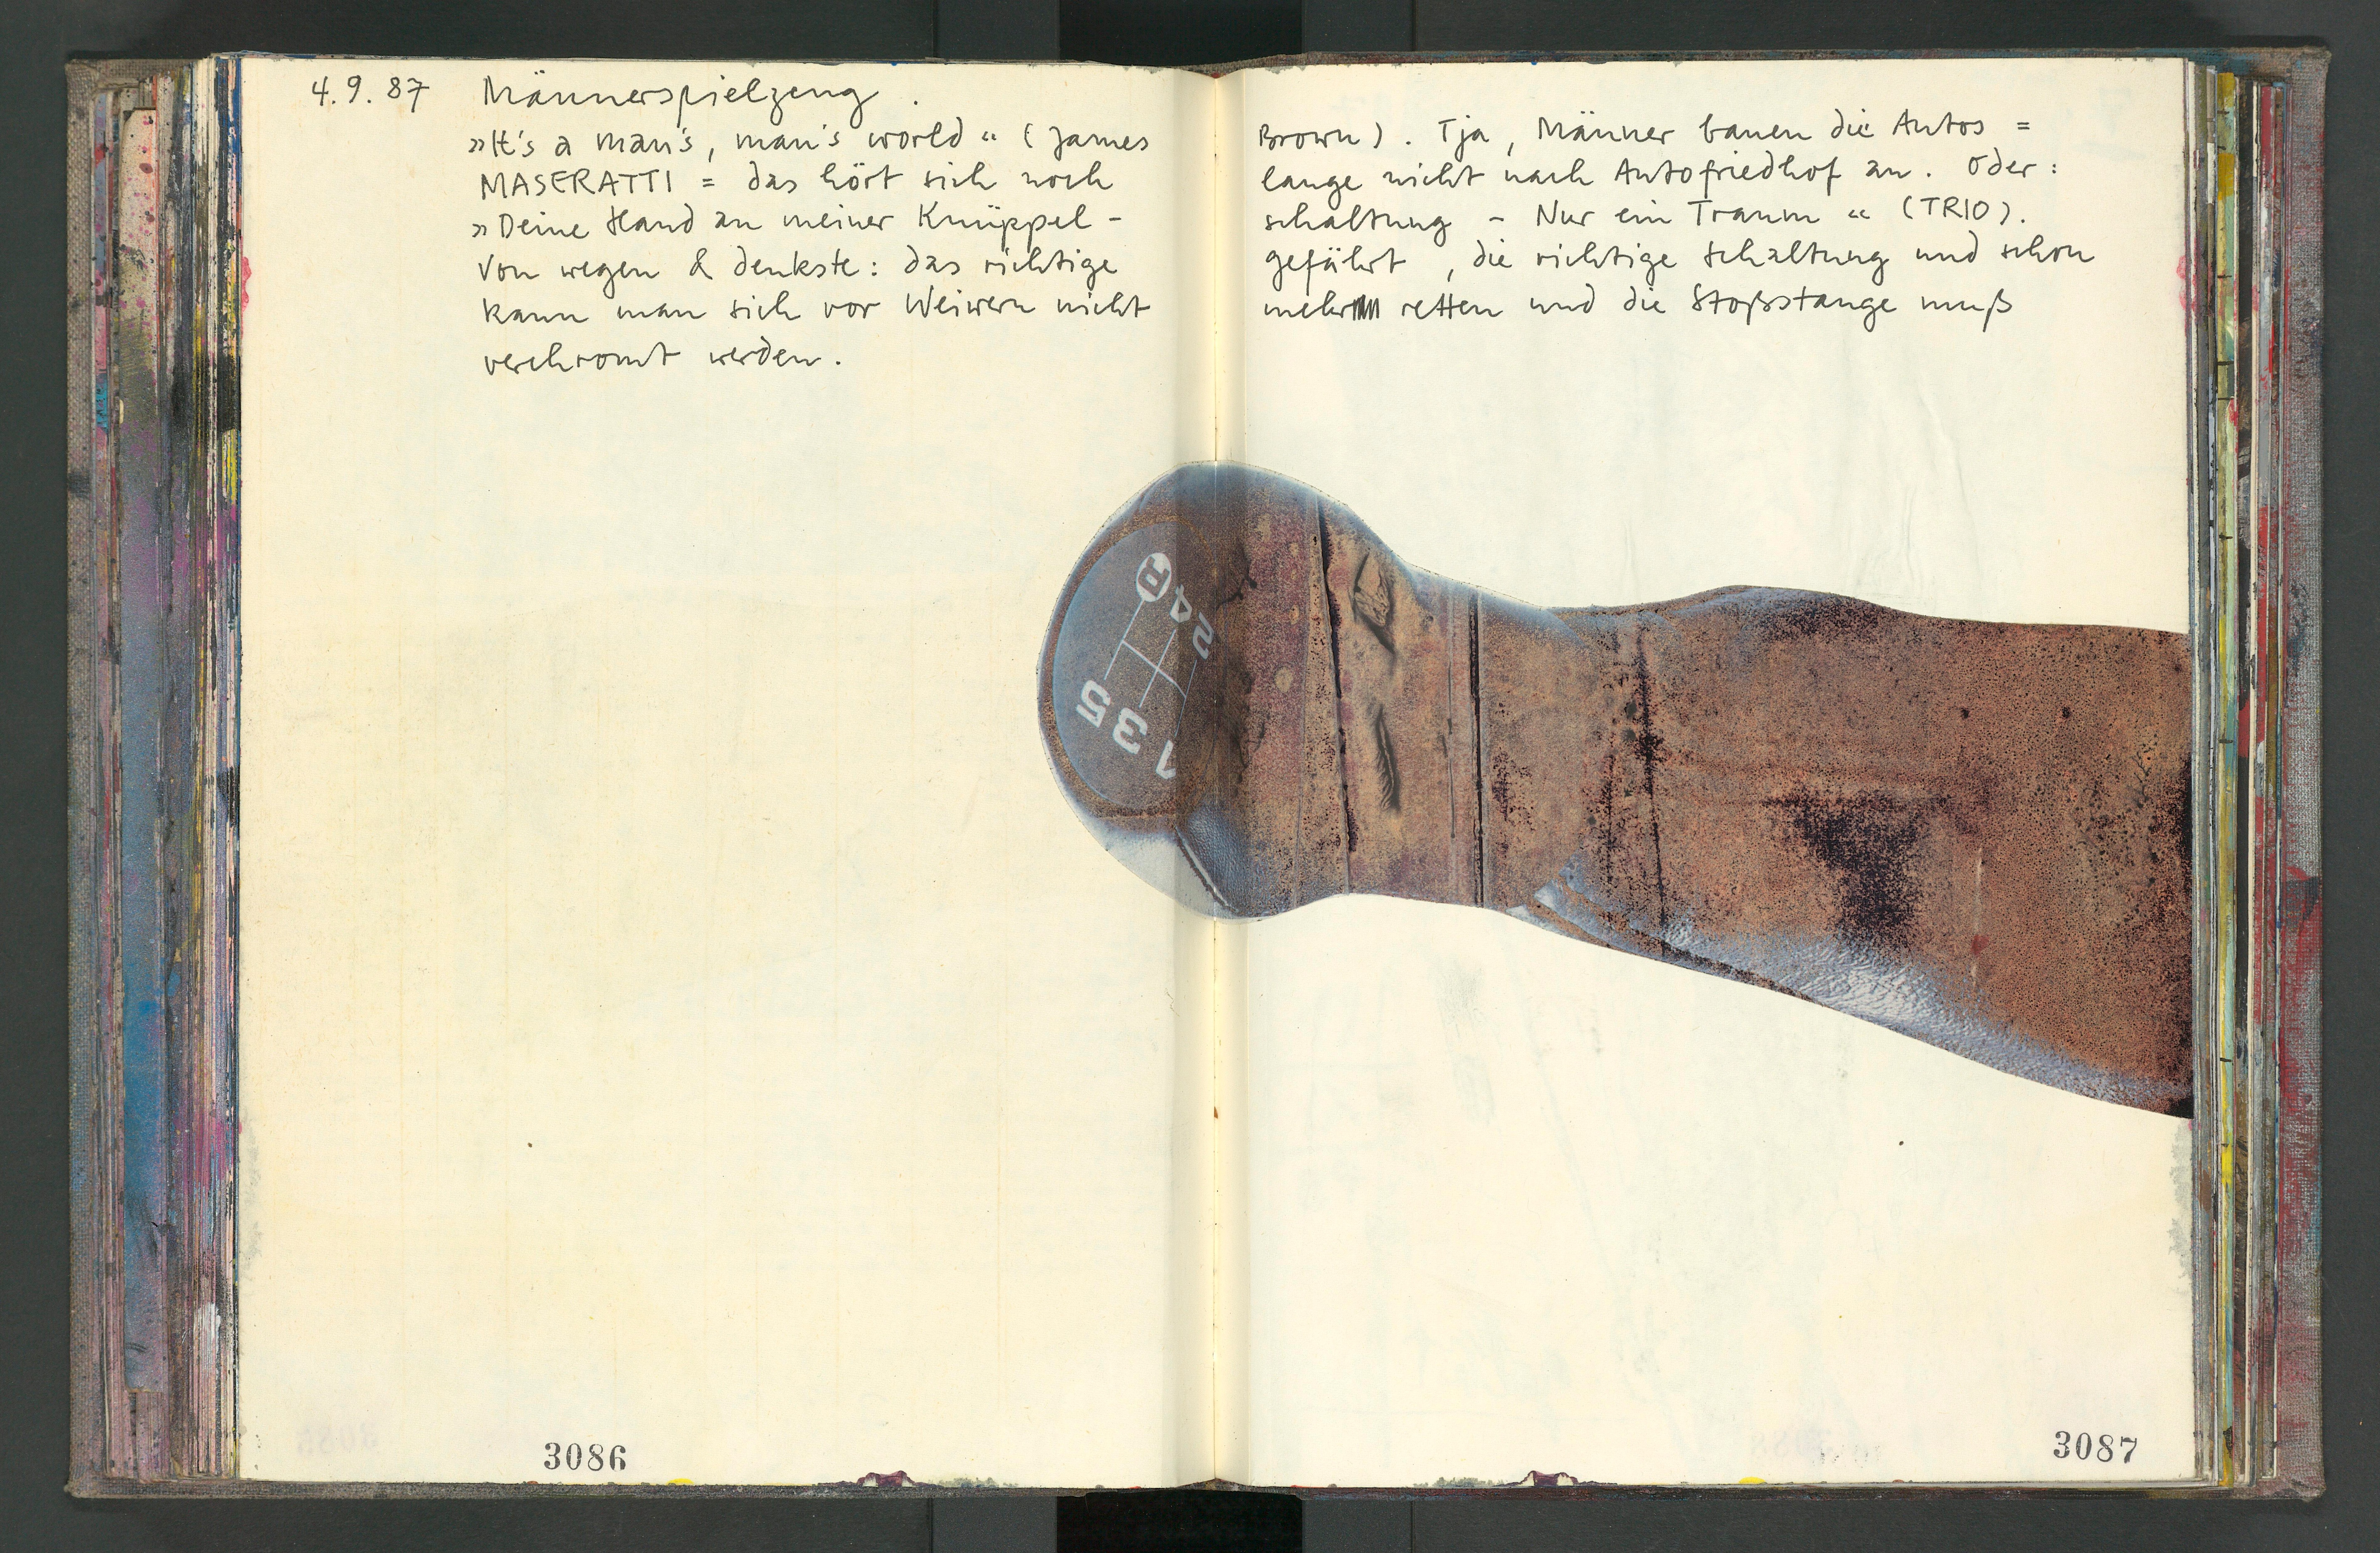 4.9.87 Männerspielzeug.
»It's a man's, man's world« (James Brown). Tja, Männer bauen die Autos =
MASERATTI = das hört sich noch lange nicht nach Autofriedhof an. Oder:
»Deine Hand an meiner Knüppel-schaltung - Nur ein Traum« (TRIO).
Von wegen & denkste: das richtige gefährt, die richtige Schaltung und schon
kann man sich vor Weiwern nicht mehr retten und die Stoßstange muß
verchromt werden.
R
2 4
5 3 1
3086
3087